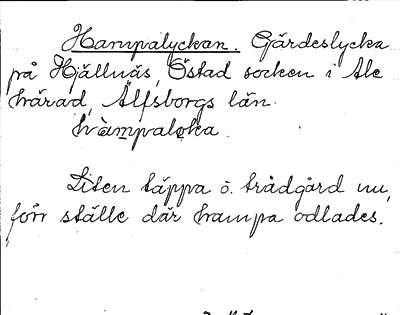 Hampalyckan. Gärdeslycka
på Hjällnäs, Östad socken i Ale
härad, Älfsborgs län.
hàmpaløka.
Liten täppa o. trädgård nu,
förr ställe där hampa odlades.